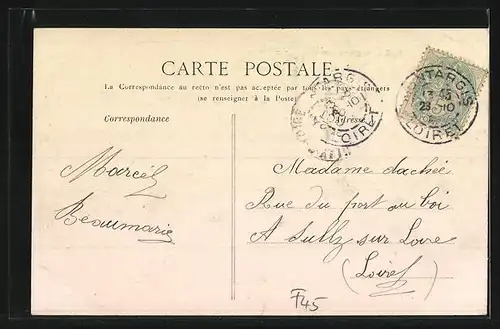 CARTE POSTALE
La Correspondance au recto n'est pas acceptée par tous les pays étrangers
(se renseigner à la Poste)
Correspondance
Adresse
MONTARGIS
LOIRET
MONTARGIS
23 -10
LOIRET
Marcel
Beaumarie
Madame dachée
Rue du port au boi
A Sully sur Loire
(Loiret)
F45